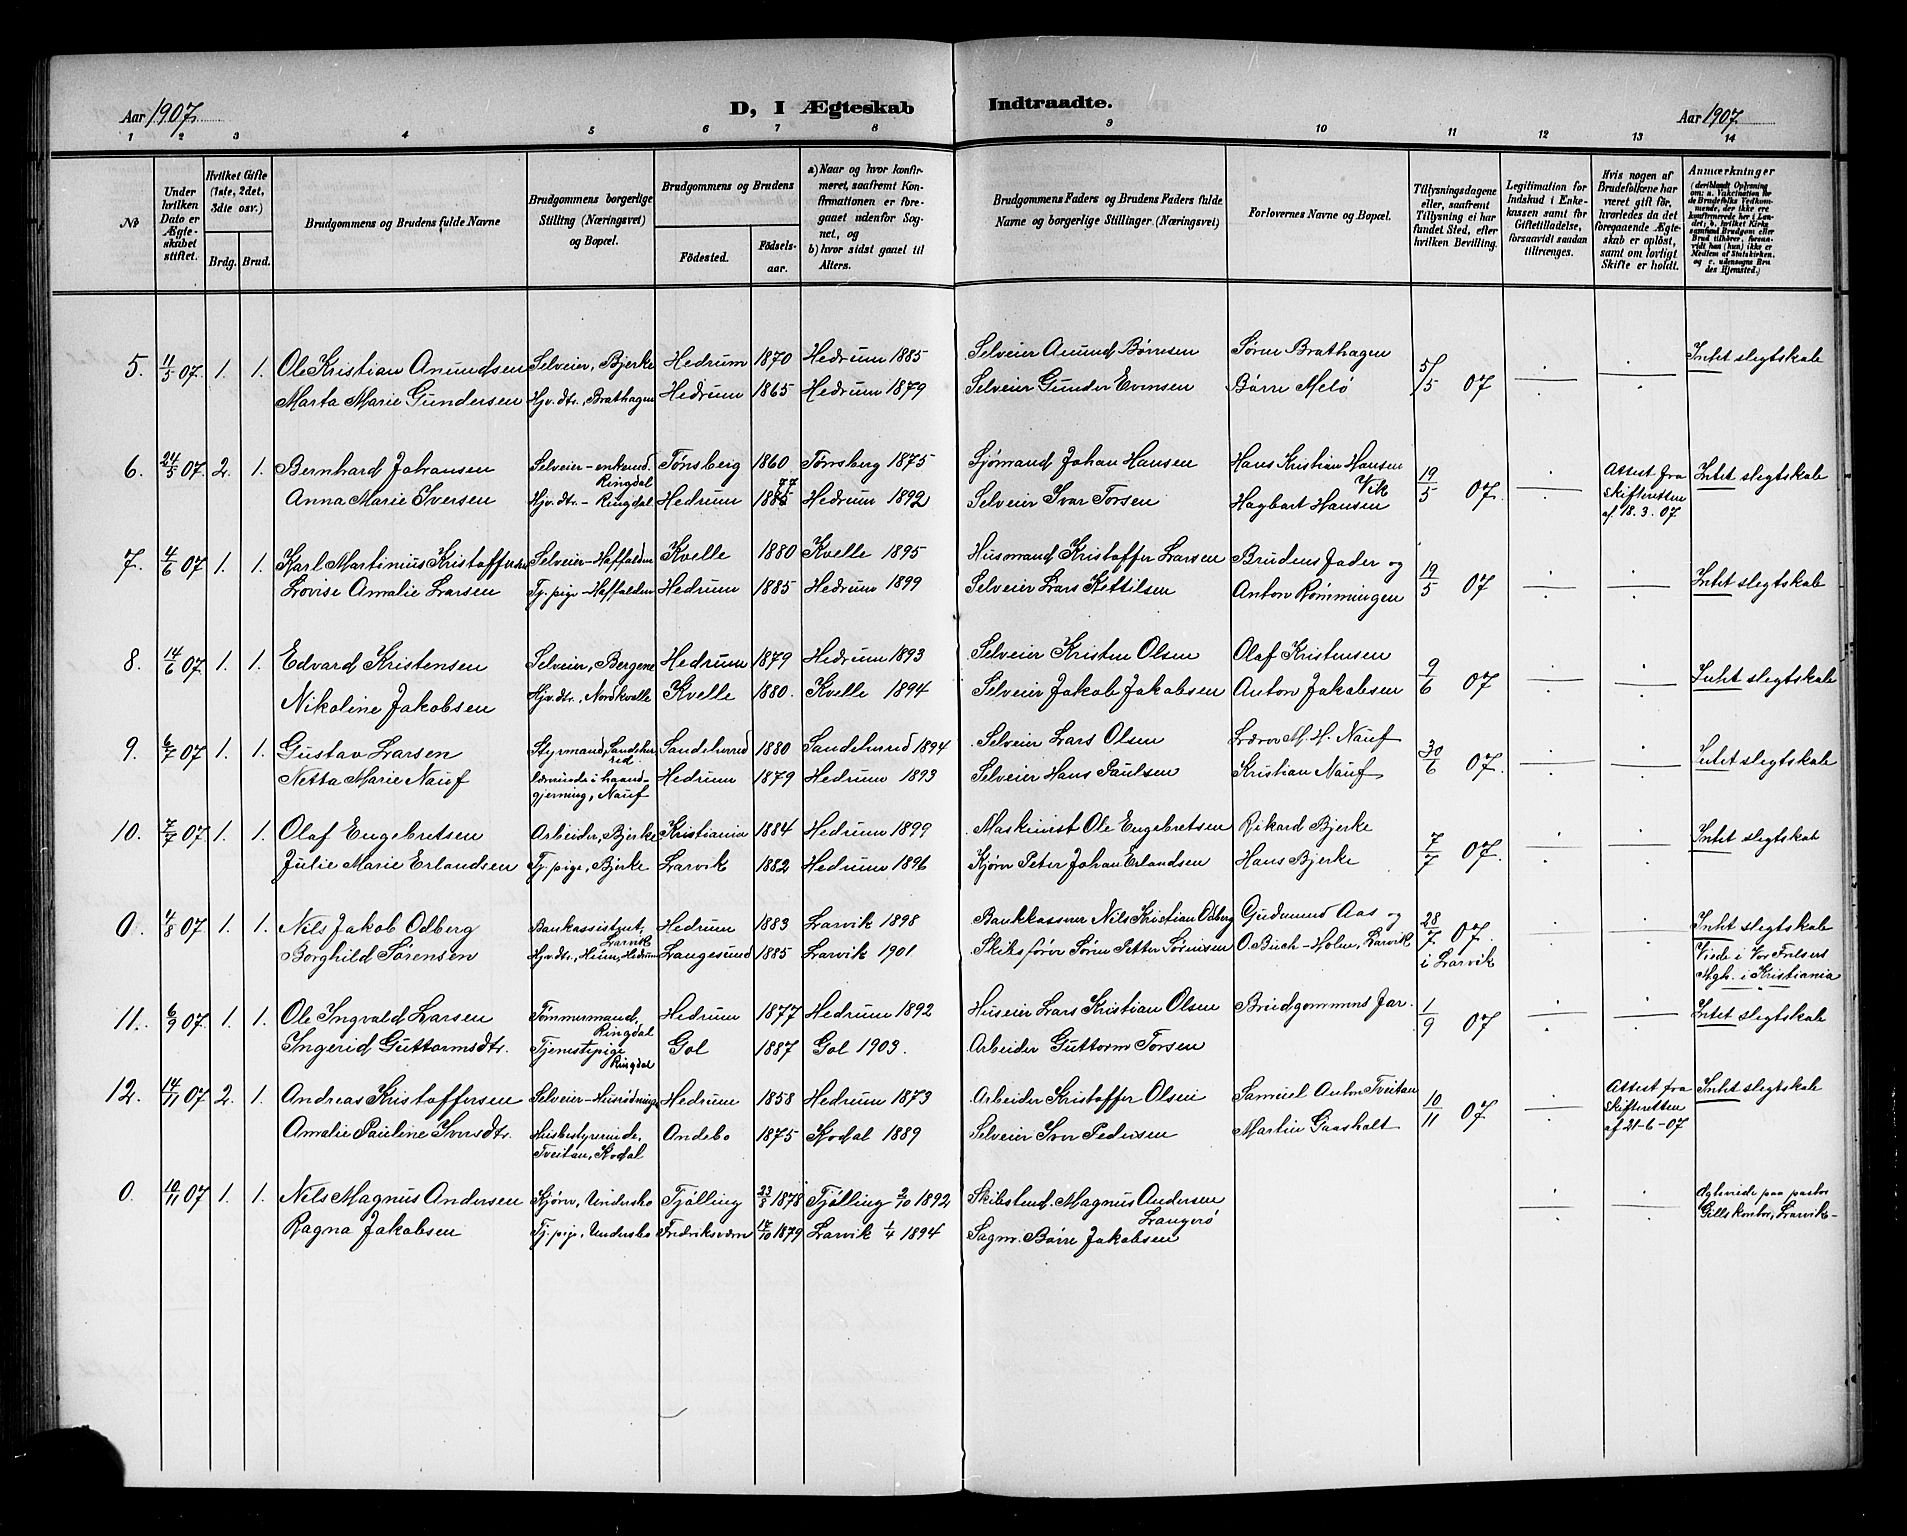 Aar 1907. D, I Ægteskab Indtraadte. Aar 1907.
1 2 3 4 5 6 7 8 9 10 11 12 13 14
№
Under hvilken Dato er Ægteskabet stiftet.
Hvilket Gifte (1ste, 2det, 3die osv.)
Brdg. Brud.
Brudgommens og Brudens fulde Navne
Brudgommens borgerlige Stilling (Næringsvei) og Bopæl.
Brudgommens og Brudens
Födested. Födsels-aar.
a) Naar og hvor konfirmeret, saafremt Konfirmationen er foregaaet udenfor Sognet, og
b) hvor sidst gaaet til Alters.
Brudgommens Faders og Brudens Faders fulde Navne og borgerlige Stillinger (Næringsvei)
Forlovernes Navne og Bopæl.
Tillysningsdagene eller, saafremt Tillysning ei har fundet Sted, efter hvilken Bevilling.
Legitimation for Indskud i Enkekassen samt for Giftetilladelse, forsaavidt saadan tiltrænges.
Hvis nogen af Brudefolkene har været gift för, hvorledes da det foregaaende Ægteskab er oplöst, samt om lovligt Skifte er holdt.
Anmærkninger (deriblandt Oplysning om: a. Vakcination for de Brudefolks Vedkommende, der ikke ere konfirmerede her i Landet; b. hvilket Kirkesamfund Brudgom eller Brud tilhörer, forsaavidt han (hun) ikke er Medlem af Statskirken, og c. udensogns Brudes Hjemsted.)
5. 11/5 07. 1. 1. Ole Kristian Amundsen Selveier, Bjerke Hedrum 1870 Hedrum 1885 Selveier Amund Børresen Søren Brathagen 5/5 07 Intet slegtskab
Marta Marie Gundersen Hjv.dtr., Brathagen Hedrum 1865 Hedrum 1879 Selveier Gunder Evensen Børre Melø
6. 24/5 07. 2. 1. Bernhard Johansen Selveier-enkemd. Ringdal Tønsberg 1860 Tønsberg 1875 Sjømand Johan Hansen Hans Kristian Hansen Vik 19/5 07. Attest fra Skifteretten af 18.3.07. Intet slegtskab
Anna Marie Iversen Hjv.dtr. - Ringdal Hedrum 1877 Hedrum 1892 Selveier Ivar Torsen Hagbart Hansen
7. 4/6 07 1. 1. Karl Martinius Kristoffersen Selveier-Haffalden Kvelle 1880 Kvelle 1895 Husmand Kristoffer Larsen Brudens Fader og 19/5 07 Intet slegtskab
Lovise Amalie Larsen Tj.pige-Haffalden Hedrum 1885 Hedrum 1899 Selveier Lars Kittilsen Anton Rømmingen
8. 14/6 07. 1. 1. Edvard Kristensen Selveier, Bergene Hedrum 1879 Hedrum 1893 Selveier Kristen Olsen Olaf Kristensen 9/6 07 Intet slegtskab
Nikoline Jakobsen Hjv.dtr., Nordkvelle Kvelle 1880. Kvelle 1894 Selveier Jakob Jakobsen Anton Jakobsen
9. 6/7 07 1. 1. Gustav Larsen Styrmand, Sandeherred Sandeherred 1880 Sandeherred 1894 Selveier Lars Olsen Lærer M. H. Nauf 30/6 07. Intet slegtskab
Netta Marie Nauf lærerinde i haandgjerning, Nauf Hedrum 1879 Hedrum 1893 Selveier Hans Paulsen Kristian Nauf
10. 7/7 07. 1. 1. Olaf Engebretsen Arbeider, Bjerke Kristiania 1884 Hedrum 1899 Maskinist Ole Engebretsen Rikard Bjerke 7/7 07. Intet slegtskab
Julie Marie Erlandsen Tj.pige, Bjerke Larvik 1882 Hedrum 1896 Kjører Peter Johan Erlandsen Hans Bjerke
0. 4/8 07 1. 1. Nils Jakob Odberg Bankassistent, Larvik Hedrum 1883 Larvik 1898 Bankkasserer Nils Kristian Odberg Gudmund Aas og 28/7 07. i Larvik Intet slegtskab
Borghild Sørensen Hjv.dtr., Heim, Hedrum Langesund 1885 Larvik 1901 Skibsfører Søren Petter Sørensen O. Buch-Holm, Larvik. Viede i Vor Frelsers Mgh. i Kristiania
11. 6/9 07. 1. 1. Ole Ingvald Larsen Tømmermand, Ringdal Hedrum 1877 Hedrum 1892 Huseier Lars Kristian Olsen Brudgommens far. 1/9 07 Intet slegtskab
Ingerid Guttormsdtr. Tjenestepige Ringdal Gol 1887 Gol 1903. Arbeider Guttorm Torsen
12. 14/11 07 2. 1. Andreas Kristoffersen Selveier- Hedrum 1858 Hedrum 1873 Arbeider Kristoffer Olsen Samuel Anton Tveitan 10/11 07 Attest fra Skifteretten af 21-6-07 Intet slegtskab
Amalie Pauline Iversdtr. Husbestyrerinde, Tveitan, Kodal Andebo 1875 Kodal 1889 Selveier Iver Pedersen Martin Gaasholt
0. 10/11 07 1. 1. Nils Magnus Andersen Kjører, Undersbo Tjølling 23/8 1878 Tjølling 2/10 1892 Skibstend. Magnus Andersen Langerø Egteviede paa pastor Gills kontor, Larvik-
Ragna Jakobsen Tj.pige, Undersbo Fredriksværn 14/10 1879 Larvik 1/4 1894 Sagm. Børre Jakobsen